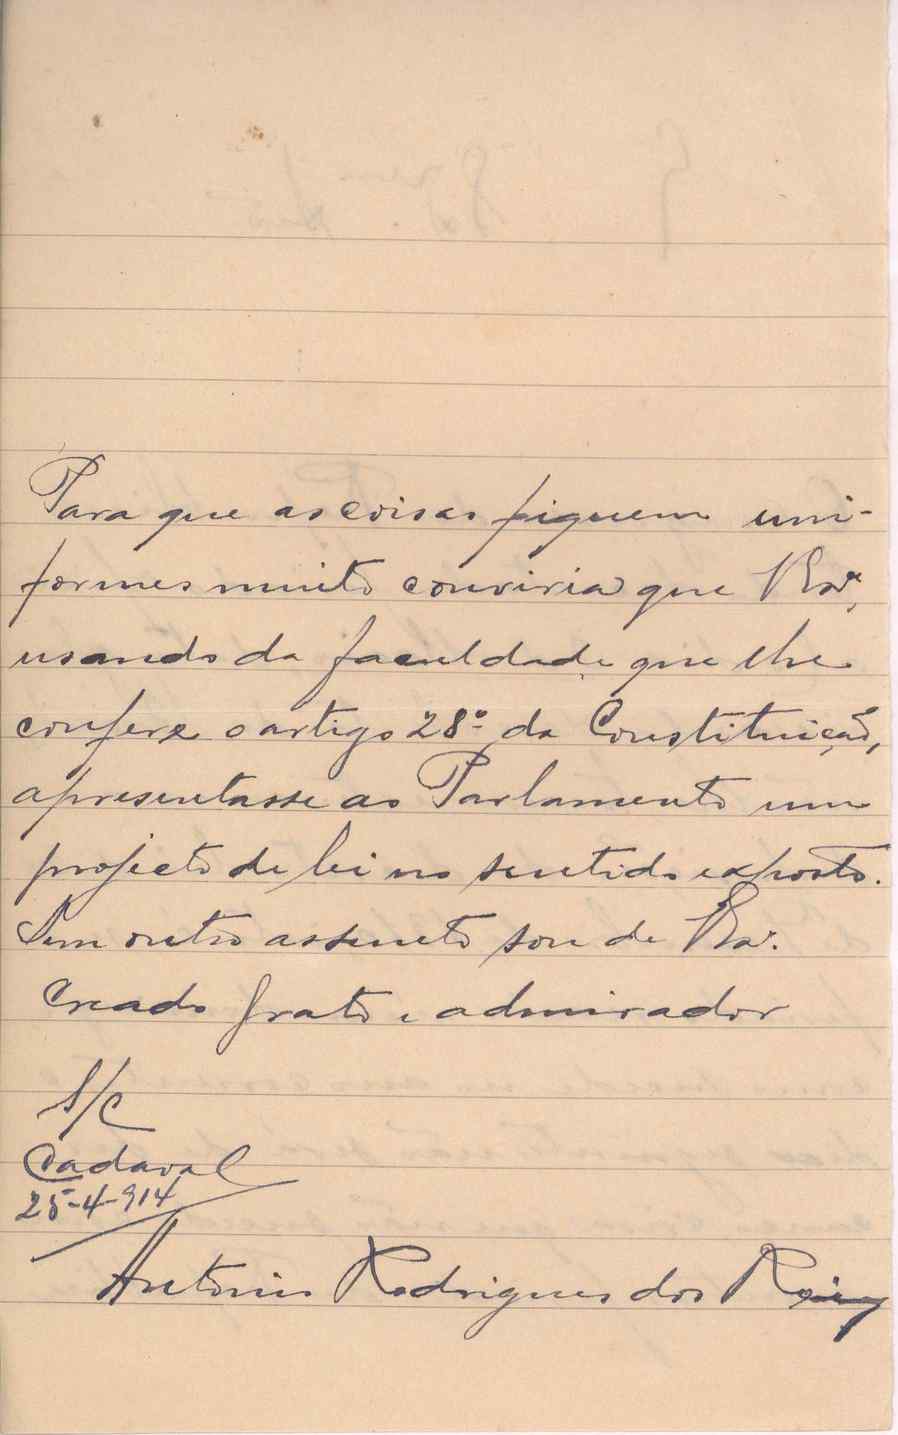 Para que as coisas fiquem uni-
formes muito conviria que V. Ex.ª,
usando da faculdade que lhe
confere o artigo 28º da Constituição,
apresentasse ao Parlamento um
projecto de lei no sentido exposto.
Sem outro assunto sou de V. Ex.ª
Creado grato e admirador
S/C
Cadaval
25-4-914
Antonio Rodrigues dos Reis